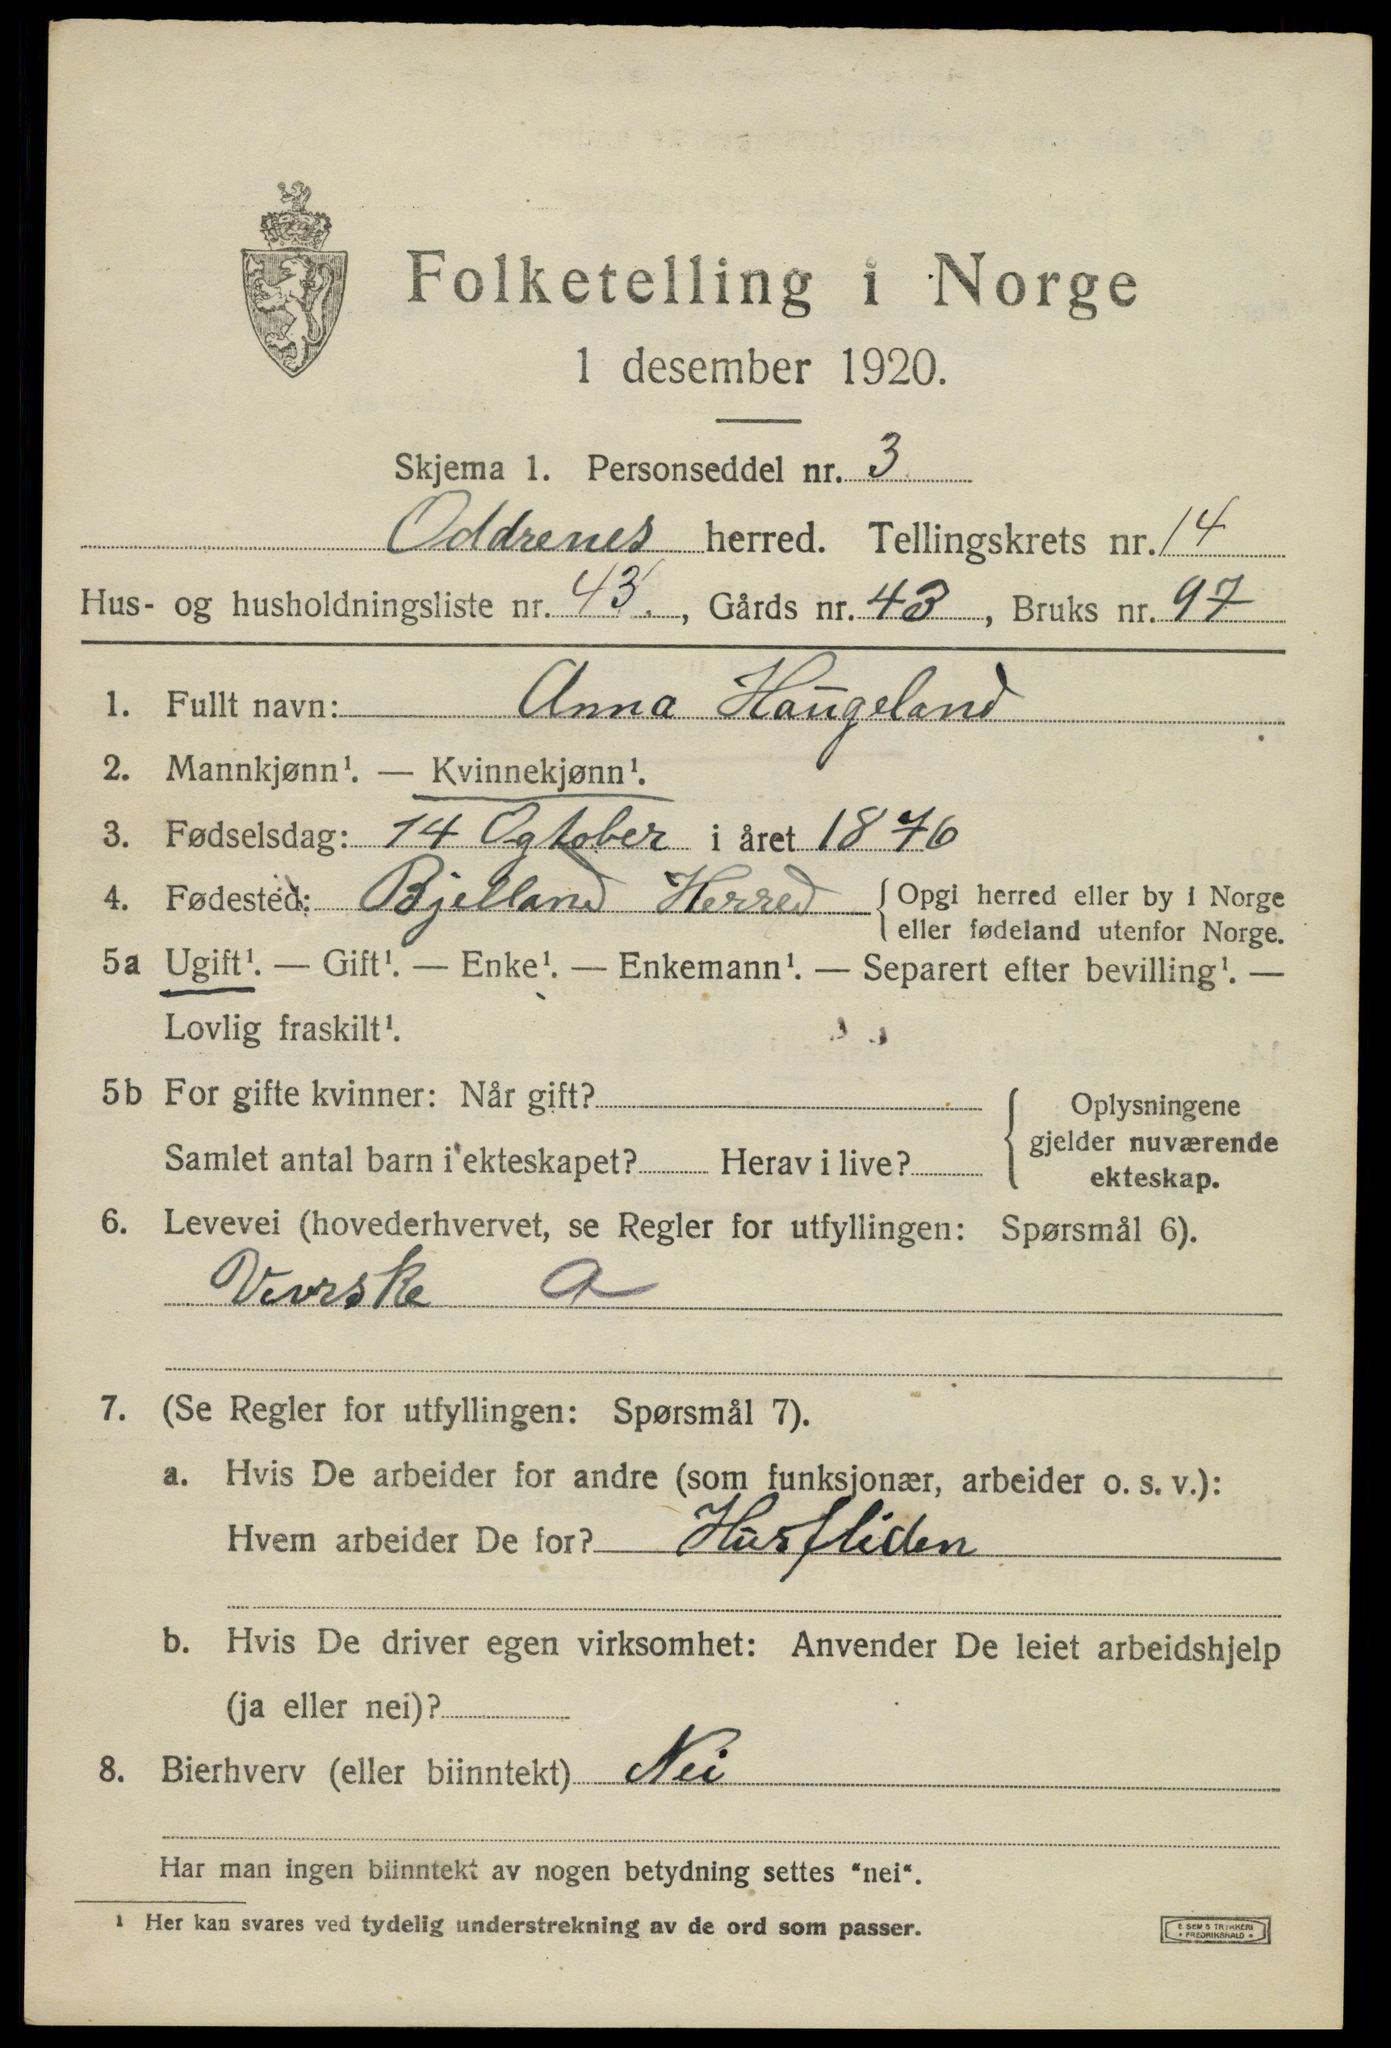 Folketelling i Norge
1 desember 1920.
Skjema 1. Personseddel nr. 3
Oddrenes herred. Tellingskrets nr. 14
Hus- og husholdningsliste nr. 43., Gårds nr. 43, Bruks nr. 97
1. Fullt navn: Anna Haugeland
2. Mannkjønn¹. — Kvinnekjønn¹.
3. Fødselsdag: 14 Ogtober i året 1876
4. Fødested: Bjelland Herred { Opgi herred eller by i Norge
eller fødeland utenfor Norge.
5a Ugift¹. — Gift¹. — Enke¹. — Enkemann¹. — Separert efter bevilling¹. —
Lovlig fraskilt¹.
5b For gifte kvinner: Når gift?
Samlet antal barn i ekteskapet? Herav i live?
{ Oplysningene
gjelder nuværende
ekteskap.
6. Levevei (hovederhvervet, se Regler for utfyllingen: Spørsmål 6).
Vevrske a
7. (Se Regler for utfyllingen: Spørsmål 7).
a. Hvis De arbeider for andre (som funksjonær, arbeider o. s. v.):
Hvem arbeider De for? Husfliden
b. Hvis De driver egen virksomhet: Anvender De leiet arbeidshjelp
(ja eller nei)?
8. Bierhverv (eller biinntekt) Nei
Har man ingen biinntekt av nogen betydning settes "nei".
1 Her kan svares ved tydelig understrekning av de ord som passer.
E SEM S TRYKKERI
• FREDRIKSHALD •